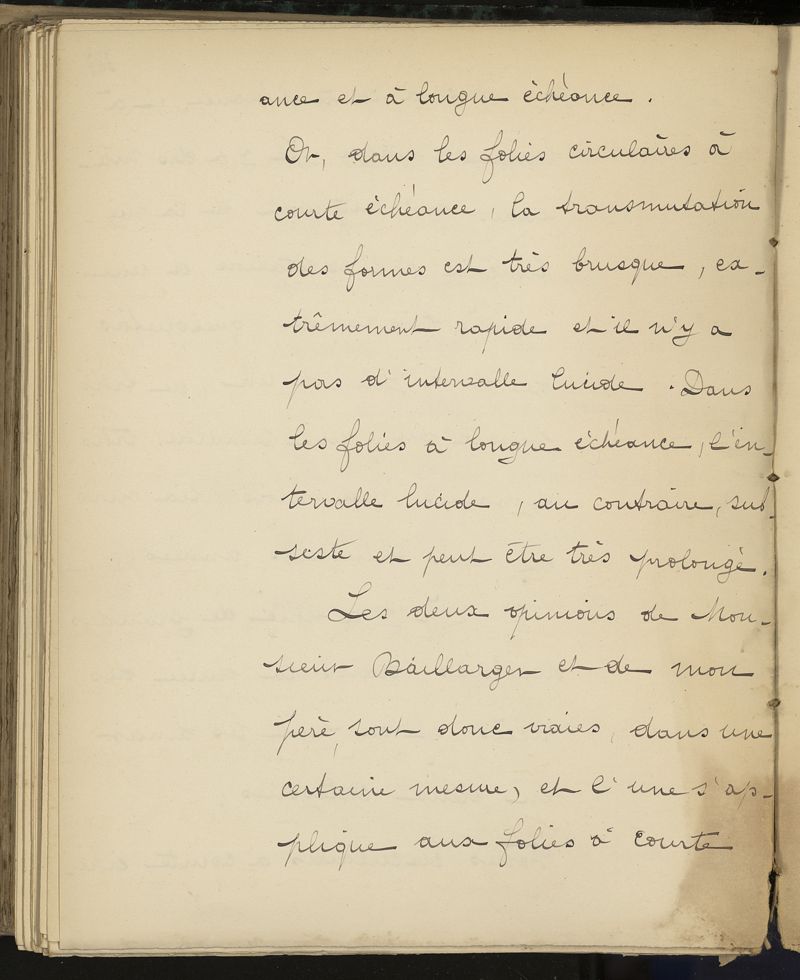 ance et à longue échéance.
Or, dans les folies circulaires à
courte échéance, la transmutation
des formes est très brusque, ex-
trêmement rapide et il n'y a
pas d'intervalle lucide. Dans
les folies à longue échéance, l'in-
tervalle lucide, au contraire, sub-
siste et peut être très prolongé.
Les deux opinions de Mon-
sieur Baillarger et de mon
père, sont donc vraies, dans une
certaine mesure, et l'une s'ap-
plique aux folies à courte